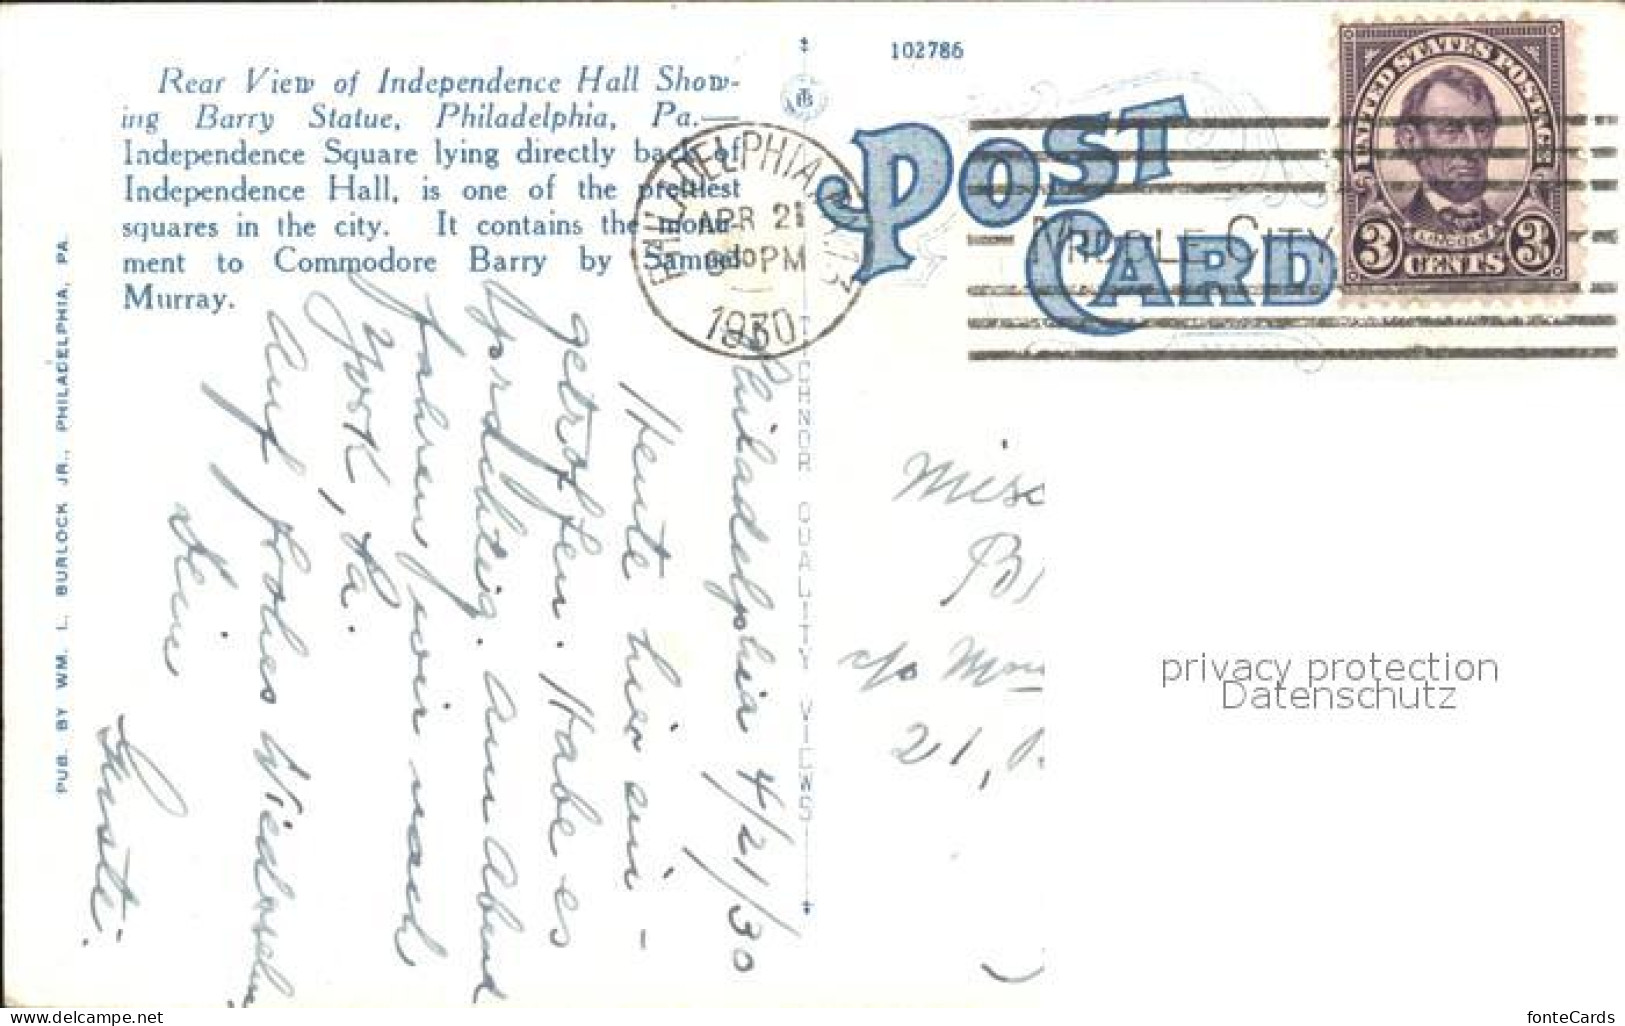 Rear View of Independence Hall Show-
ing Barry Statue, Philadelphia, Pa.—
Independence Square lying directly back of
Independence Hall, is one of the prettiest
squares in the city. It contains the monu-
ment to Commodore Barry by Samuel
Murray.
PUB. BY WM. L. BURLOCK JR., PHILADELPHIA, PA.
102786
POST
CARD
TICHNOR QUALITY VIEWS
PHILADELPHIA, PA. 13
APR 21
PM
1930
MIDDLE CITY
UNITED STATES POSTAGE
LINCOLN
3 CENTS 3
Philadelphia 4/21/30
Heute hier ein-
getroffen. Habe es
Am Abend
fahren wir nach
York, Pa.
Auf frohes Wiedersehn
Deine
Gusti.
Miss
c/o
21,
privacy protection
Datenschutz
www.delcampe.net
fonteCards